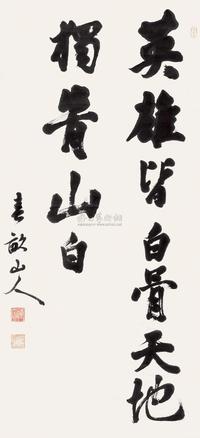 英雄皆白骨天地
獨青山白
春畝山人